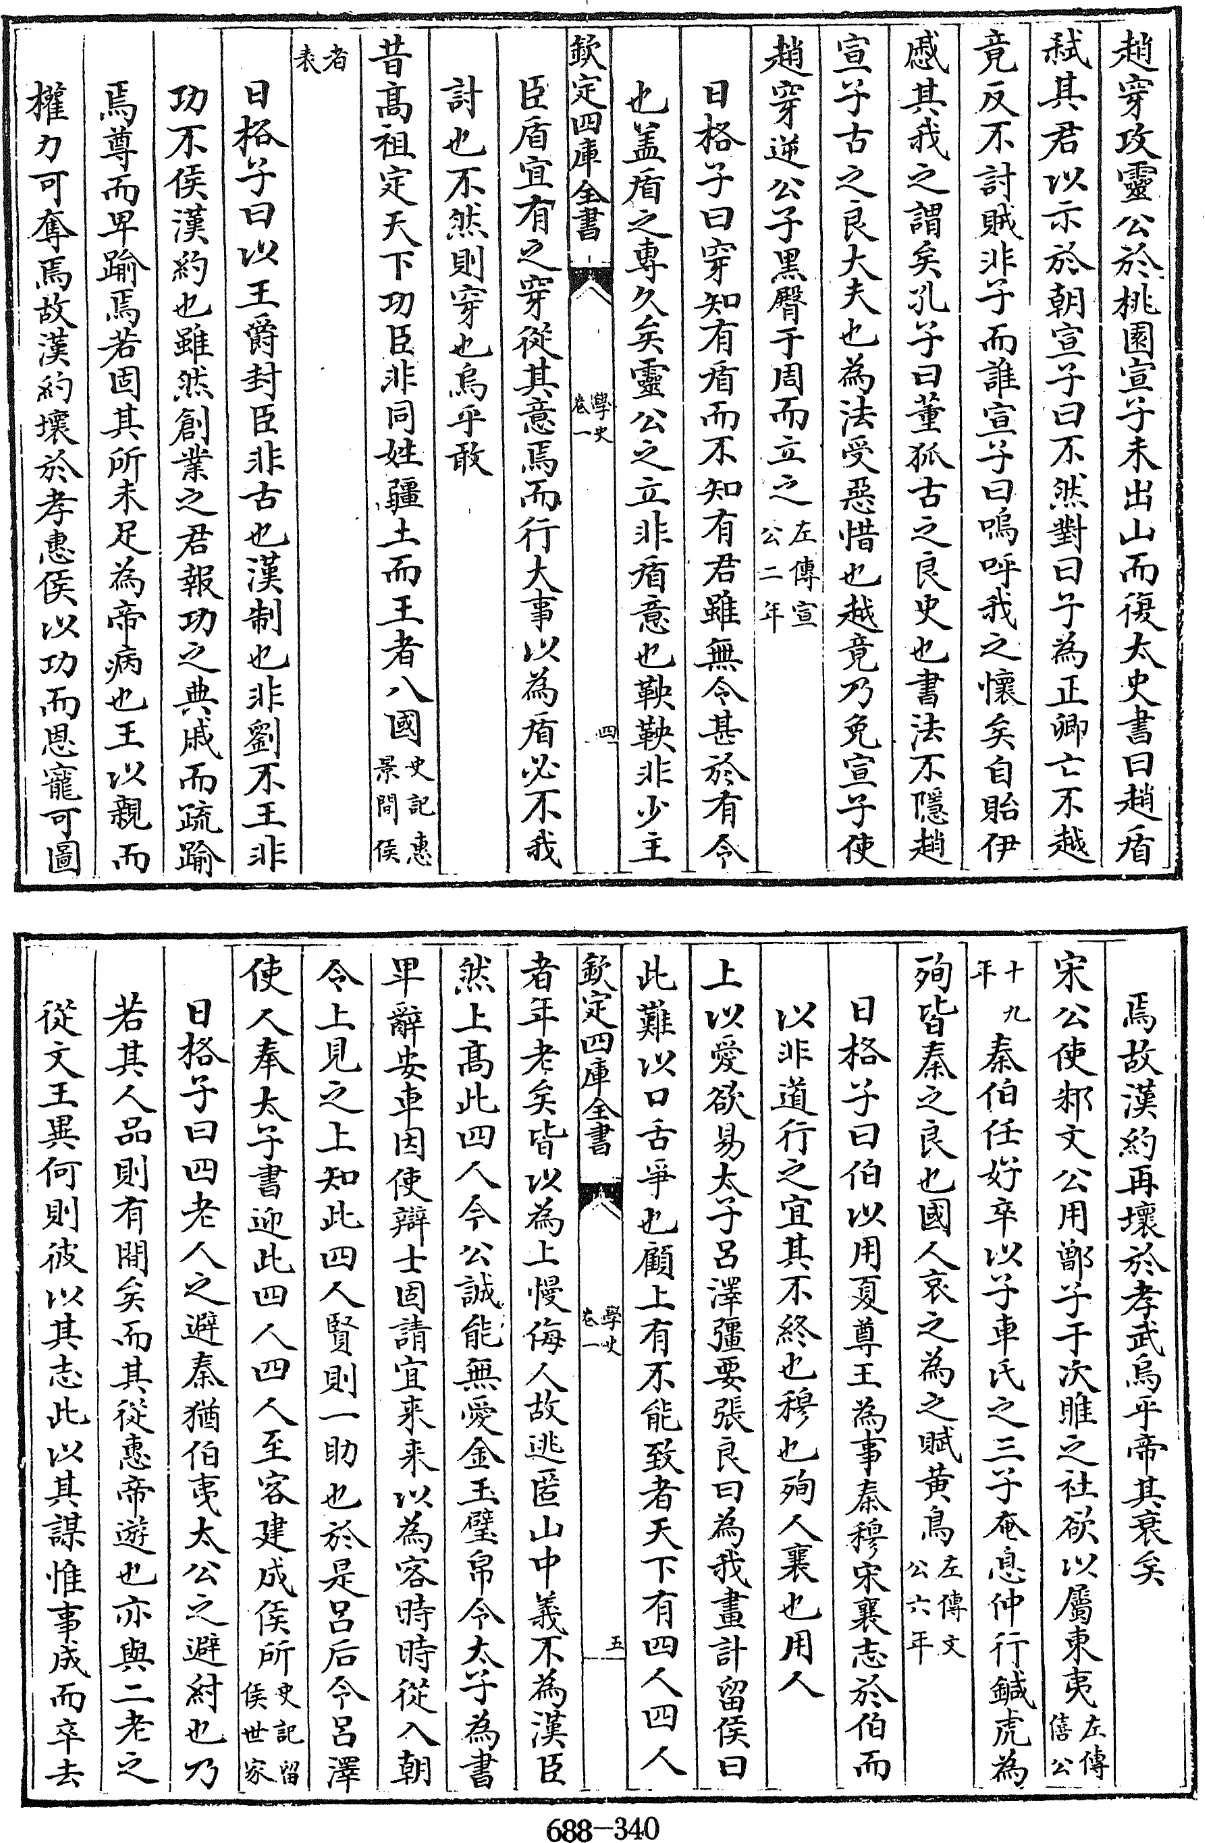 趙穿攻靈公於桃園宣子未出山而復太史書曰趙盾
弑其君以示於朝宣子曰不然對曰子為正卿亡不越
竟反不討賊非子而誰宣子曰嗚呼我之懷矣自貽伊
慼其我之謂矣孔子曰董狐古之良史也書法不隱趙
宣子古之良大夫也為法受惡惜也越竟乃免宣子使
趙穿逆公子黑臀于周而立之左傳宣公二年
日格子曰穿知有盾而不知有君雖無令甚於有令
也盖盾之專久矣靈公之立非盾意也鞅鞅非少主
欽定四庫全書
學史
卷一
四
臣盾宜有之穿從其意焉而行大事以為盾必不我
討也不然則穿也烏乎敢
昔高祖定天下功臣非同姓疆土而王者八國史記惠景間侯
者表
日格子曰以王爵封臣非古也漢制也非劉不王非
功不侯漢約也雖然創業之君報功之典戚而疏踰
焉尊而卑踰焉若固其所未足為帝病也王以親而
權力可奪焉故漢約壞於孝惠侯以功而恩寵可圖
焉故漢約再壞於孝武烏乎帝其衰矣
宋公使邾文公用鄫子于次睢之社欲以屬東夷左傳僖公
十九年秦伯任好卒以子車氏之三子奄息仲行鍼虎為
殉皆秦之良也國人哀之為之賦黄鳥左傳文公六年
日格子曰伯以用夏尊王為事秦穆宋襄志於伯而
以非道行之宜其不終也穆也殉人襄也用人
上以愛欲易太子吕澤彊要張良曰為我畫計留侯曰
此難以口舌爭也顧上有不能致者天下有四人四人
欽定四庫全書
學史
卷一
五
者年老矣皆以為上慢侮人故逃匿山中義不為漢臣
然上高此四人今公誠能無愛金玉璧帛令太子為書
卑辭安車因使辯士固請宜来来以為客時時從入朝
令上見之上知此四人賢則一助也於是吕后令吕澤
使人奉太子書迎此四人四人至客建成侯所史記留侯世家
日格子曰四老人之避秦猶伯夷太公之避紂也乃
若其人品則有間矣而其從惠帝遊也亦與二老之
從文王異何則彼以其志此以其謀惟事成而卒去
688-340